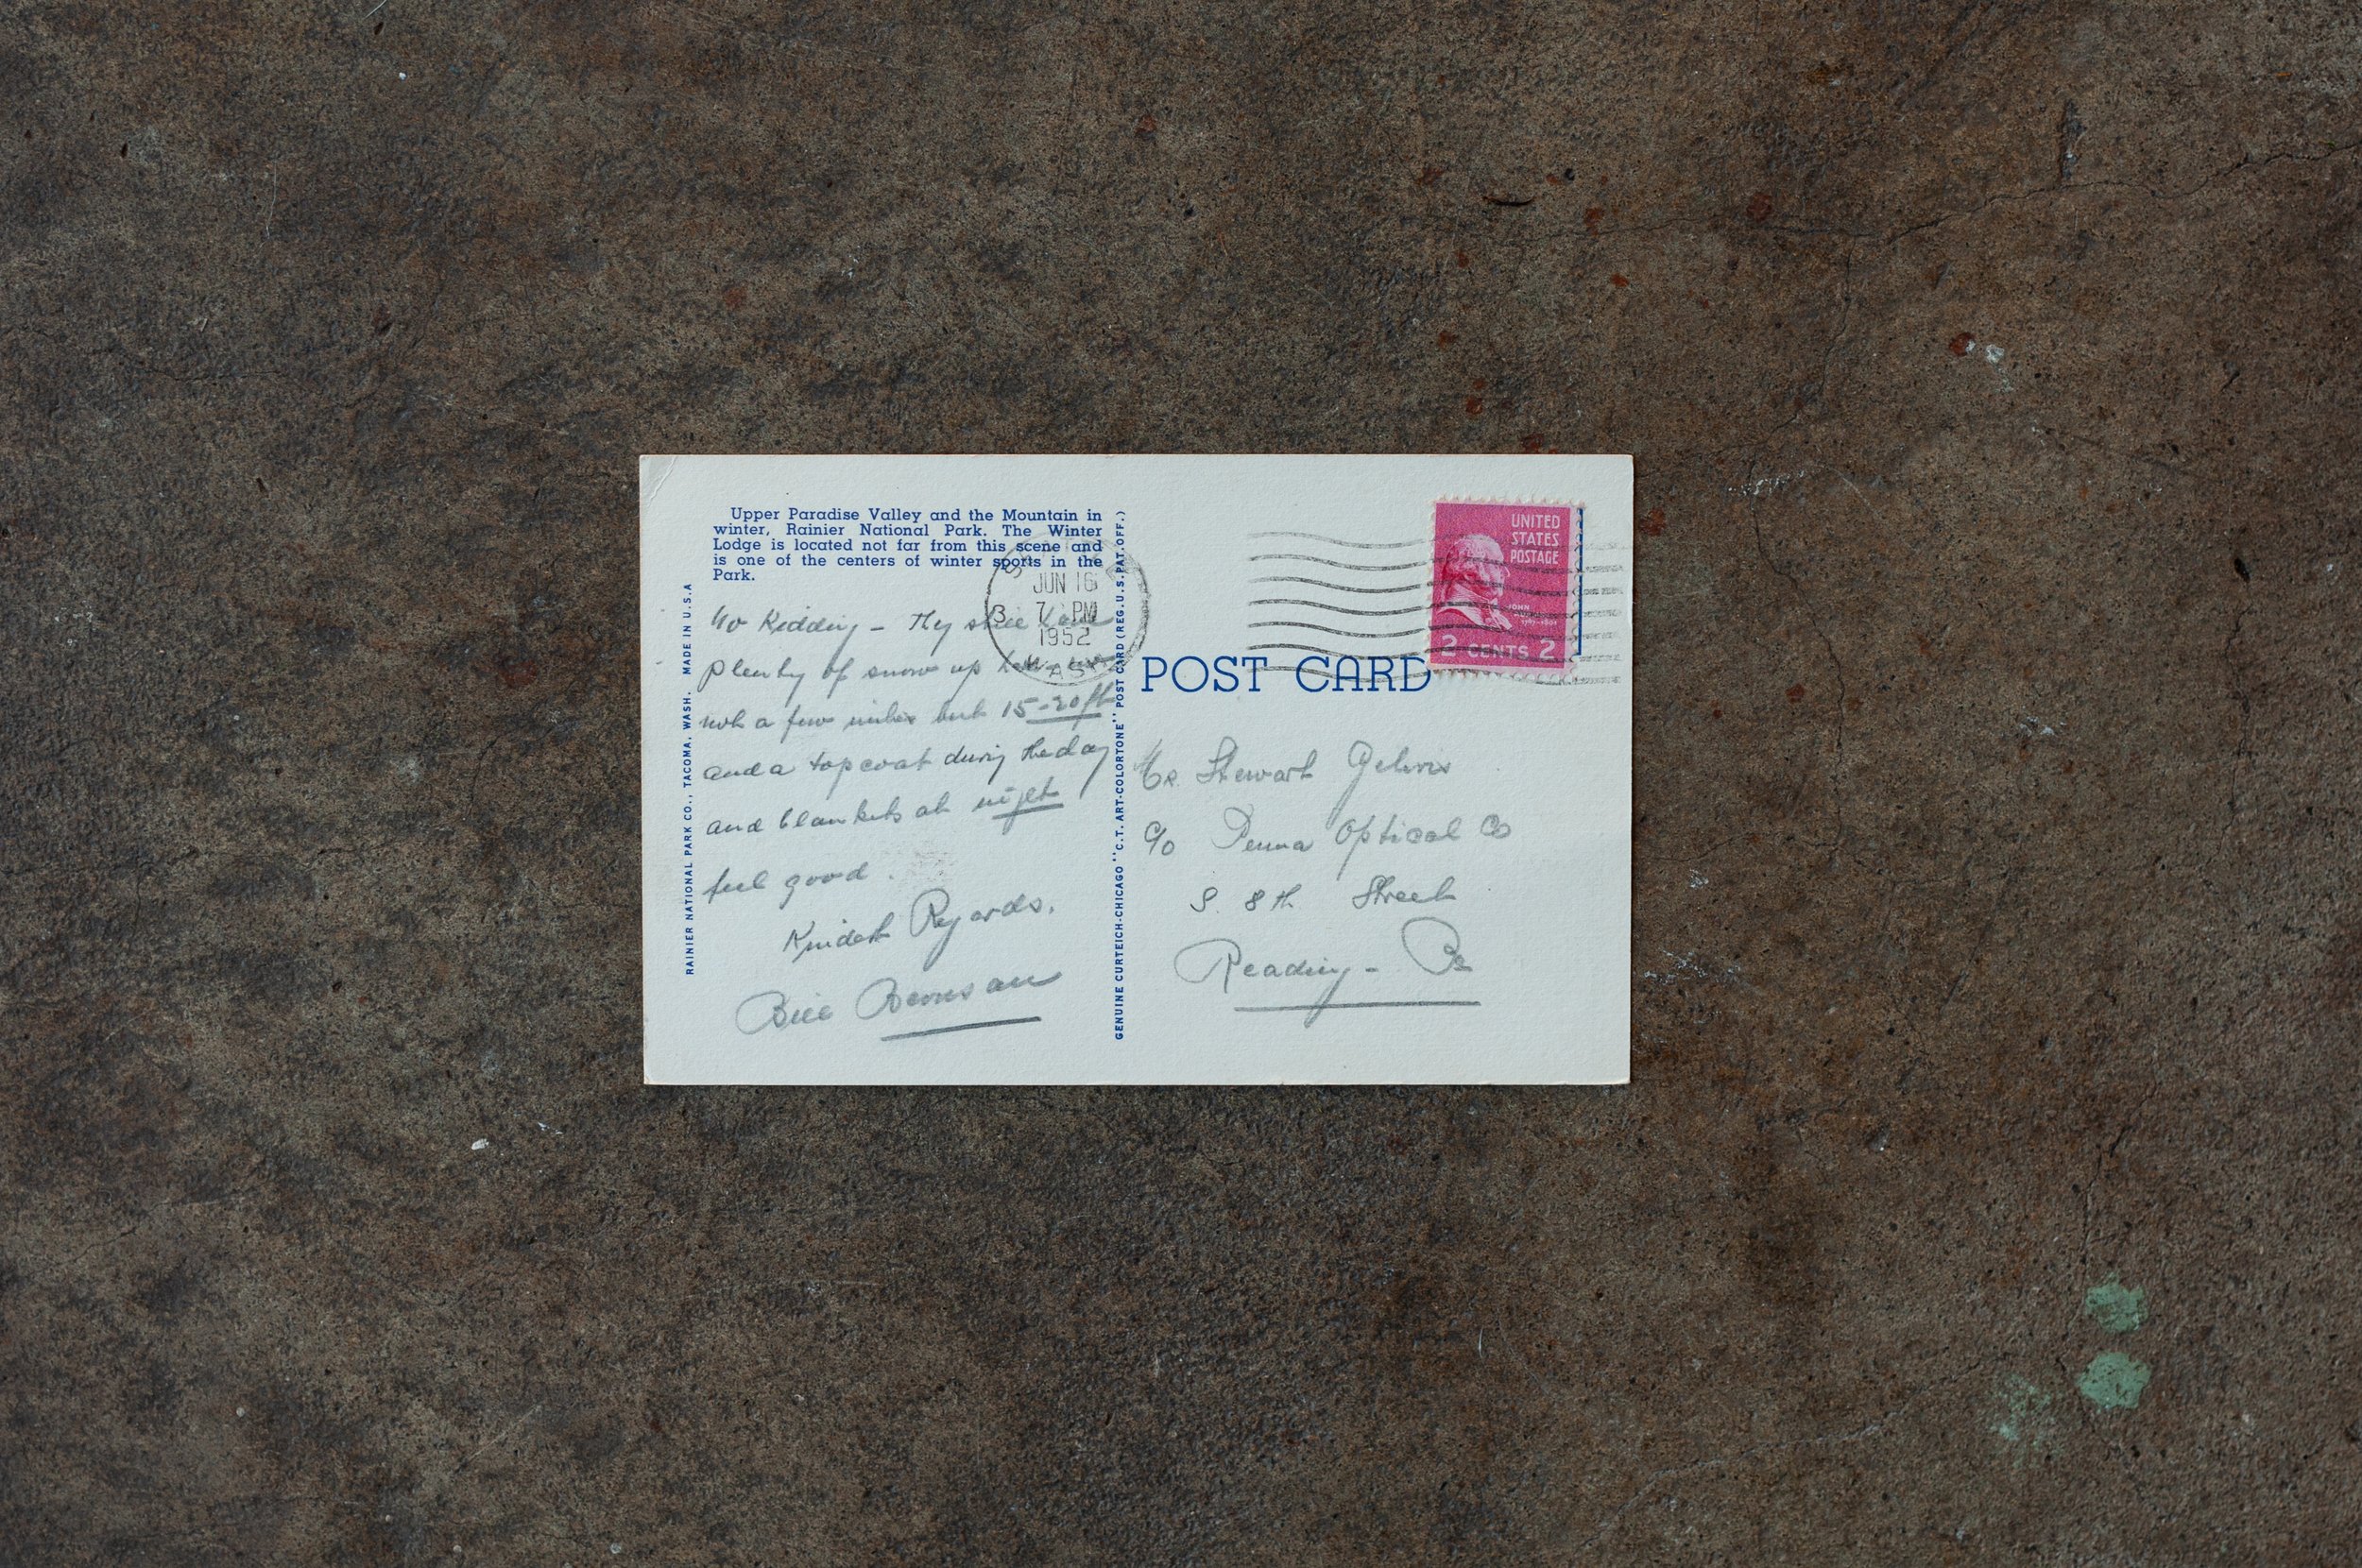 Upper Paradise Valley and the Mountain in
winter, Rainier National Park. The Winter
Lodge is located not far from this scene and
is one of the centers of winter sports in the
Park.
No Kidding - They still have
plenty of snow up here
not a few inches but 15-20ft
and a topcoat during the day
and blankets at night
feel good.
Kindest Regards.
Bill
RAINIER NATIONAL PARK CO., TACOMA, WASH. MADE IN U.S.A
GENUINE CURTEICH-CHICAGO "C.T. ART-COLORTONE" POST CARD (REG.U.S.PAT.OFF.)
JUN 16
7 PM
1952
WASH
UNITED
STATES
POSTAGE
JOHN
2 CENTS 2
POST CARD
Mr. Stewart
c/o Penna Optical Co
S. 8th Street
Reading - Pa